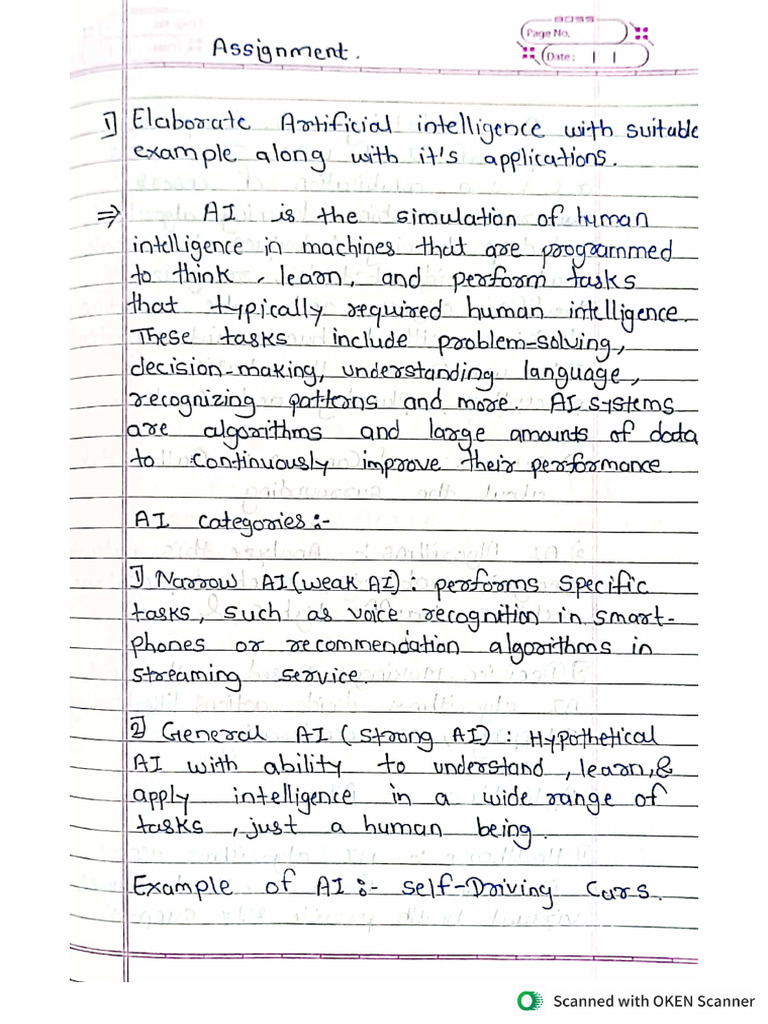 BOSS
Page No.
Date :
Assignment.
1] Elaborate Artificial intelligence with suitable
example along with it's applications.
⇒ AI is the simulation of human
intelligence in machines that are programmed
to think, learn, and perform tasks
that typically required human intelligence.
These tasks include problem-solving,
decision-making, understanding language,
recognizing patterns and more. AI systems
are algorithms and large amounts of data
to continuously improve their performance
AI categories :-
1] Narrow AI (weak AI) : performs specific
tasks, such as voice recognition in smart-
phones or recommendation algorithms in
streaming service.
2] General AI (strong AI) : Hypothetical
AI with ability to understand, learn, &
apply intelligence in a wide range of
tasks, just a human being.
Example of AI :- self-Driving Cars.
Scanned with OKEN Scanner